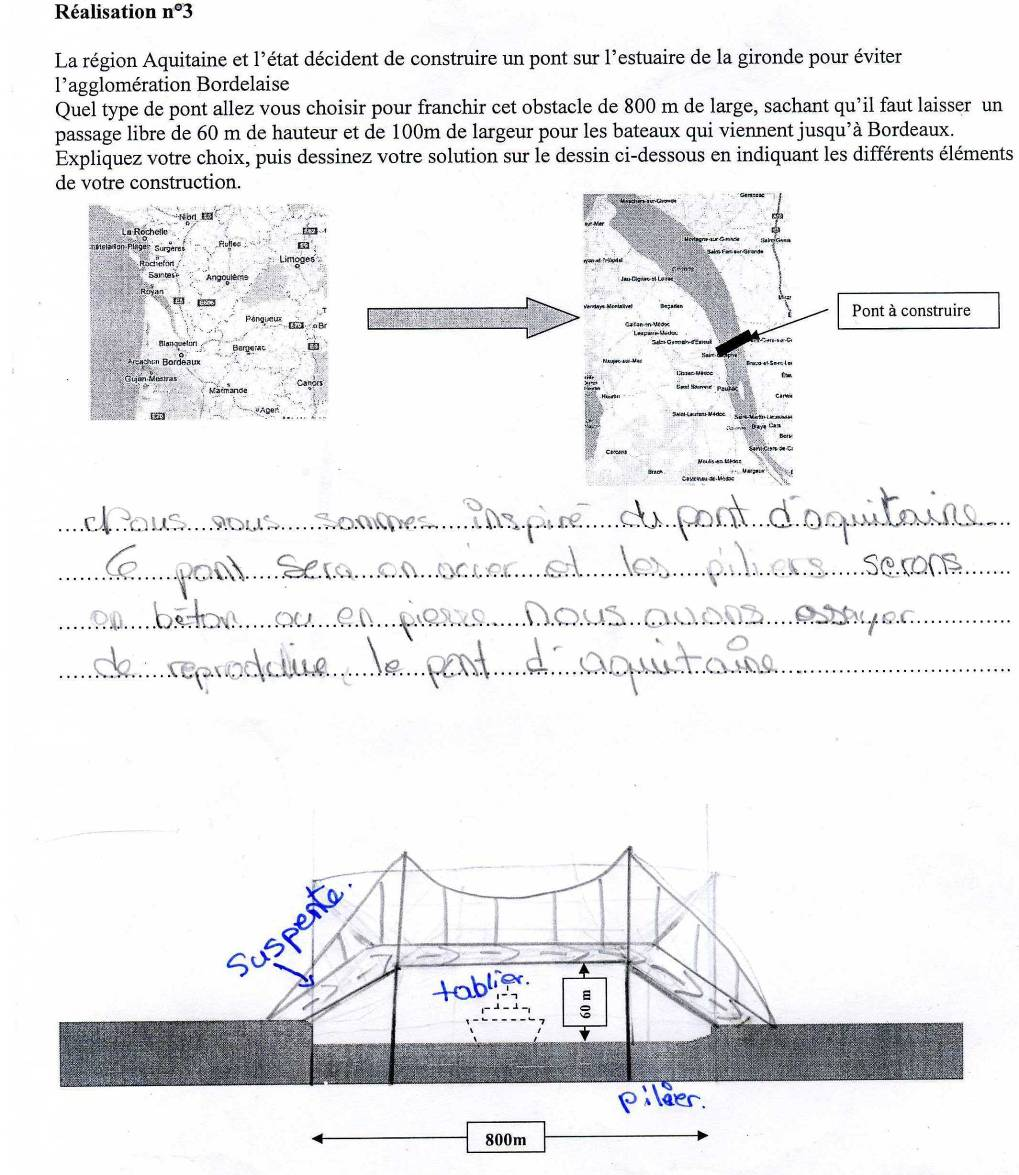 Réalisation n°3
La région Aquitaine et l'état décident de construire un pont sur l'estuaire de la gironde pour éviter
l'agglomération Bordelaise
Quel type de pont allez vous choisir pour franchir cet obstacle de 800 m de large, sachant qu'il faut laisser un
passage libre de 60 m de hauteur et de 100m de largeur pour les bateaux qui viennent jusqu'à Bordeaux.
Expliquez votre choix, puis dessinez votre solution sur le dessin ci-dessous en indiquant les différents éléments
de votre construction.
Niort
La Rochelle
Surgères
Ruffec
Rochefort
Limoges
Saintes
Angoulême
Royan
Périgueux
Blanquefort
Bergerac
Arcachon Bordeaux
Gujan-Mestras
Marmande
Cahors
Agen
Mortagne-sur-Gironde
Jau-Dignac-et-Loirac
Gaillan-en-Médoc
Lesparre-Médoc
Saint-Germain-d'Esteuil
Cissac-Médoc
Saint-Sauveur
Pauillac
Hourtin
Saint-Laurent-Médoc
Carcans
Moulis-en-Médoc
Brach
Margaux
Castelnau-de-Médoc
Pont à construire
Nous nous sommes inspiré du pont d'aquitaine
Le pont sera en acier et les piliers serons
en béton ou en pierre. Nous avons essayer
de reproduire le pont d'aquitaine
Suspente.
tablier.
60 m
pilier.
800m